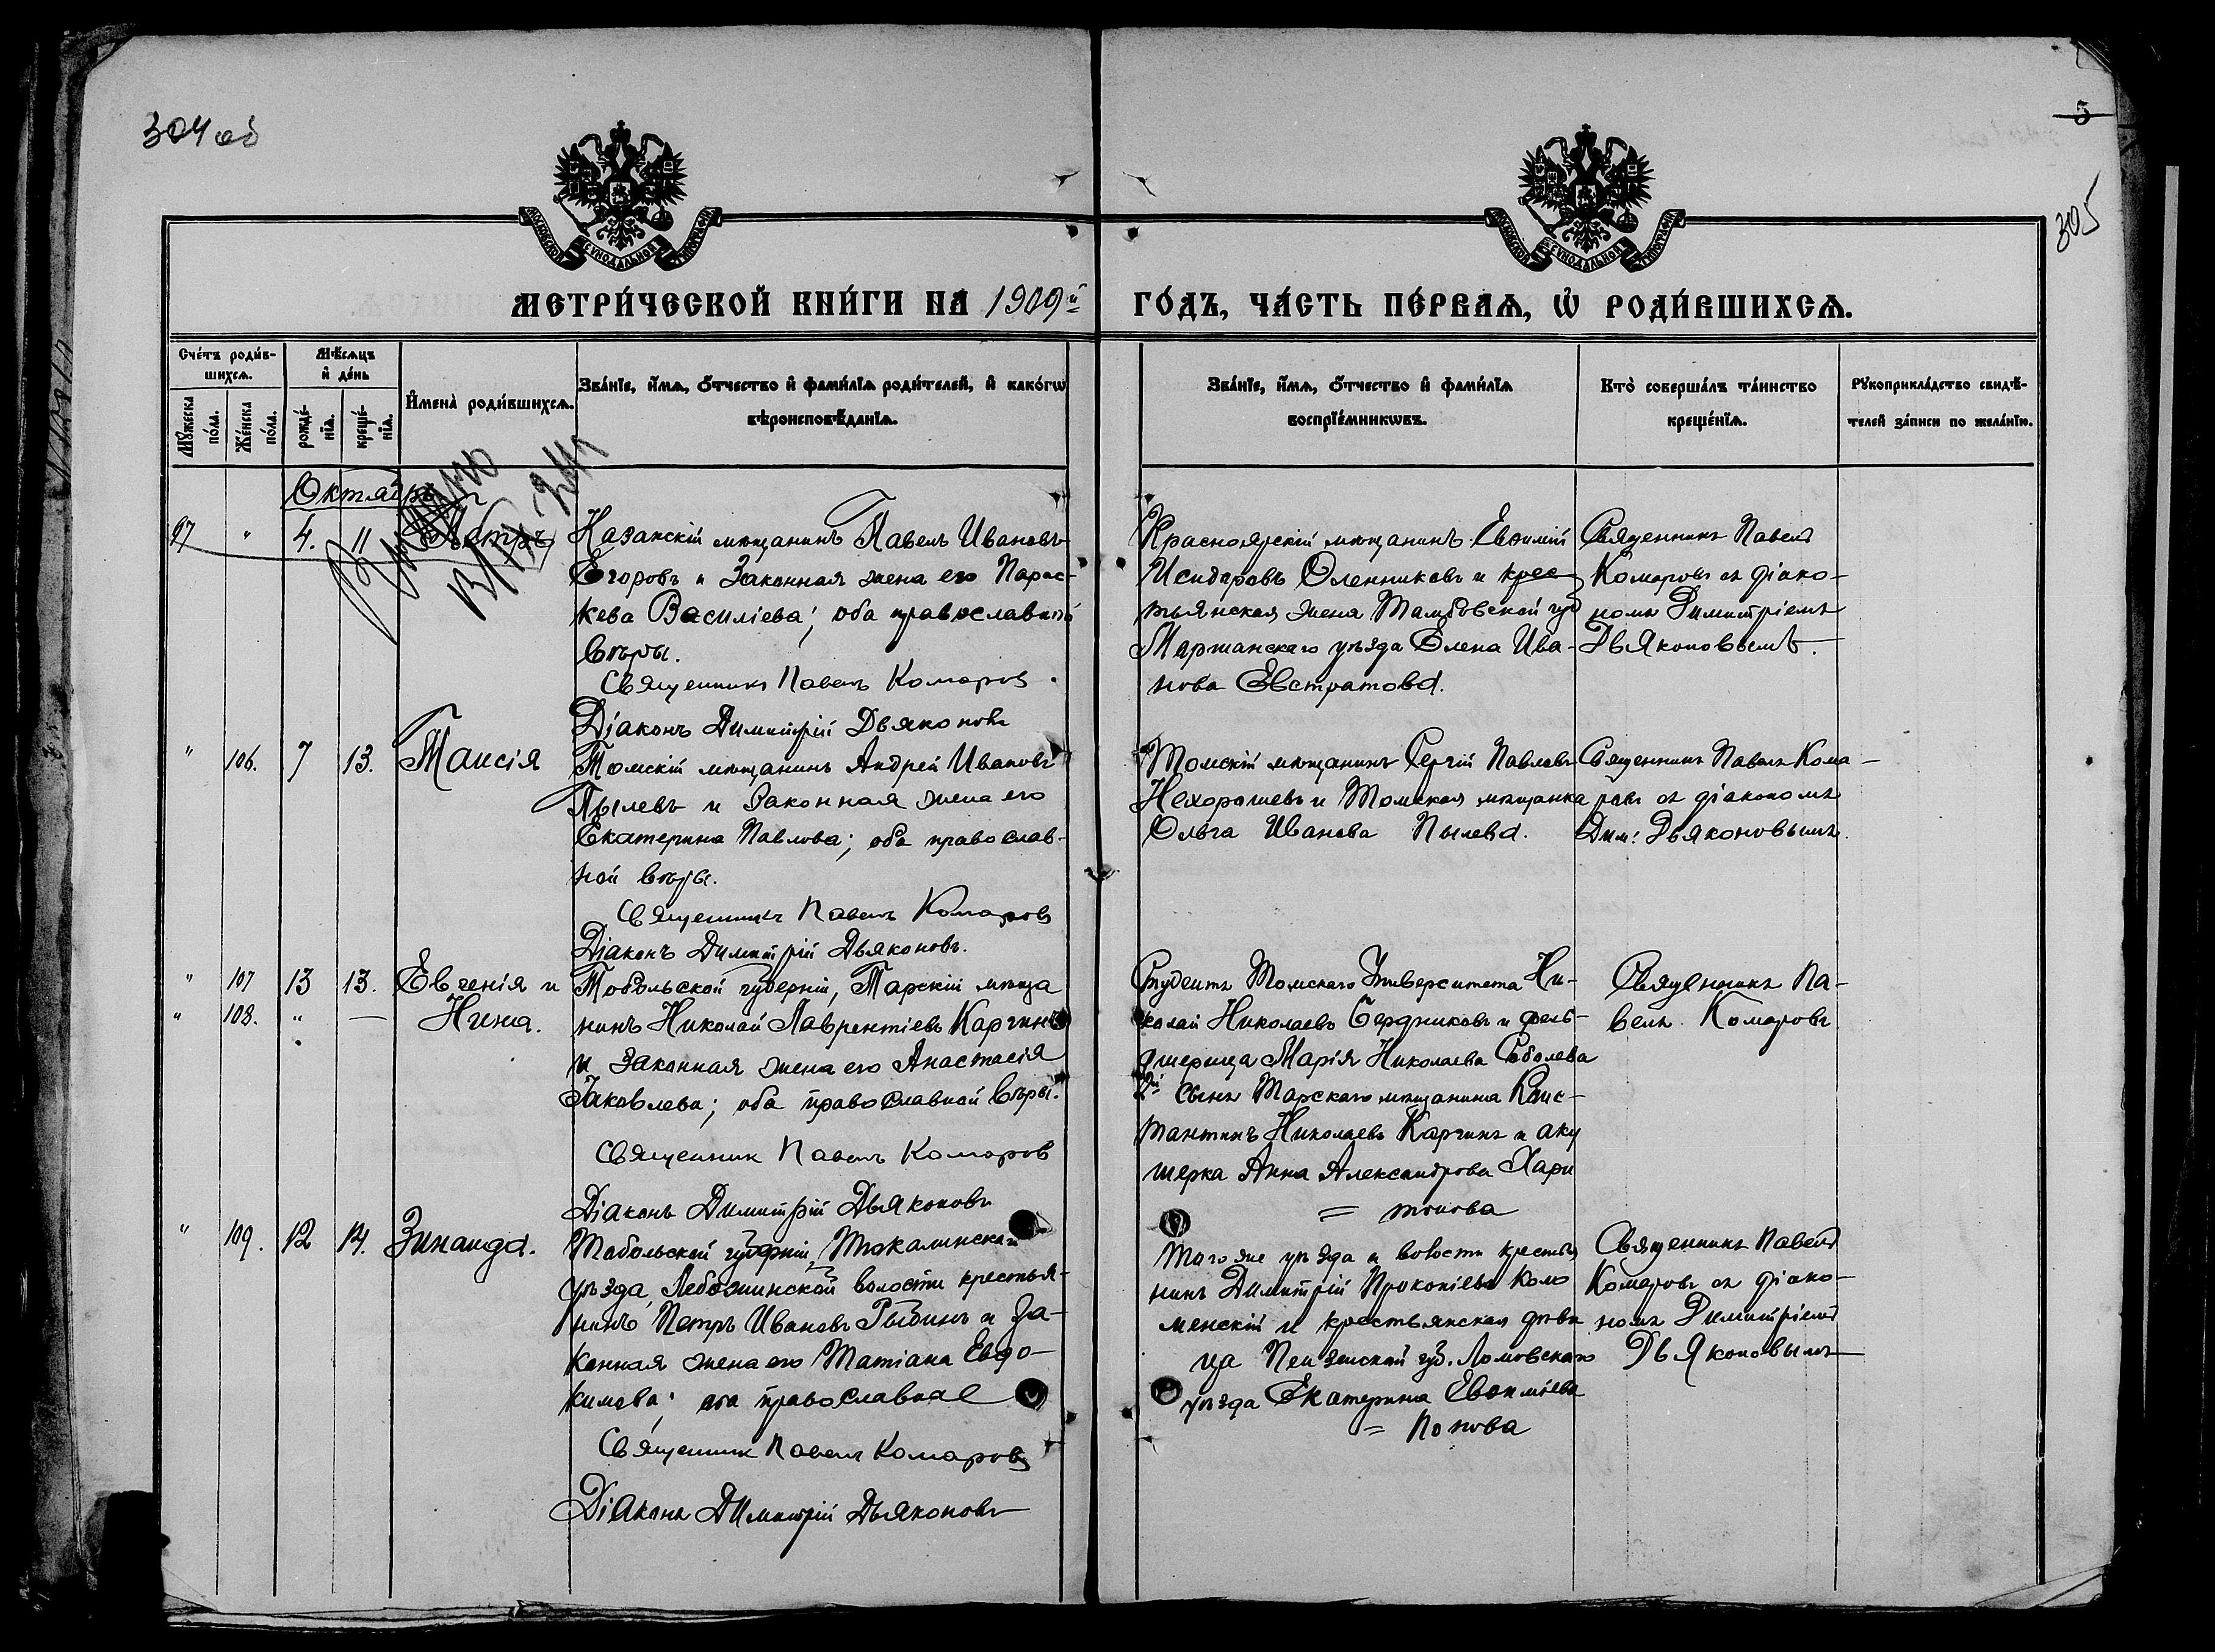 304 об
5
305
МОСКОВСКОЙ СѴНОДАЛЬНОЙ ТИПОГРАФІИ
МОСКОВСКОЙ СѴНОДАЛЬНОЙ ТИПОГРАФІИ
МЕТРИ́ЧЕСКОЙ КНИ́ГИ НА 1909й ГО́ДЪ, ЧА́СТЬ ПЕ́РВАѦ, Ѡ҆ РОДИ́ВШИХСѦ.
Сче́тъ роди́в-
шихсѧ.
Мѣ́сѧцъ
и҆ де́нь
Мꙋ́жеска
по́ла.
Же́нска
по́ла.
рожде́-
нїѧ.
креще́-
нїѧ.
И҆мена̀ роди́вшихсѧ.
Зва́нїе, и҆́мѧ, ѻ҆́тчество и҆ фами́лїѧ роди́телей, и҆ како́гѡ
вѣроисповѣ́данїѧ.
Зва́нїе, и҆́мѧ, ѻ҆́тчество и҆ фами́лїѧ
воспрїе́мникѡвъ.
Кто̀ соверша́лъ та́инство
креще́нїѧ.
Рꙋкоприкла́дство свидѣ́-
телей за́писи по жела́нїю.
Октябрь
97 " 4. 11 Петръ
Казанскій мѣщанинъ Павелъ Ивановъ
Егоровъ и Законная жена его Парас-
кева Василіева; оба православной
вѣры.
Священникъ Павелъ Комаровъ.
Діаконъ Димитрій Дьяконовъ
Красноярскій мѣщанинъ Евѳимій
Исидоровъ Оленниковъ и крес
тьянская жена Тамбовской губ
Маршанскаго уѣзда Елена Ива-
нова Евстратова.
Священникъ Павелъ
Комаровъ съ діако-
номъ Димитріемъ
Дьяконовымъ.
" 106. 7 13. Таисія
Томскій мѣщанинъ Андрей Ивановъ
Пылевъ и Законная жена его
Екатерина Павлова; оба православ-
ной вѣры.
Священникъ Павелъ Комаровъ
Діаконъ Димитрій Дьяконовъ.
Томскій мѣщанинъ Сергій Павловъ
Нехорошевъ и Томская мѣщанка
Ольга Иванова Пылева.
Священникъ Павелъ Кома-
ровъ съ діакономъ
Дим: Дьяконовымъ.
" 107 13 13. Евгенія и
" 108. " — Нина.
Тобольской губерніи, Тарскій мѣща
нинъ Николай Лаврентіевъ Каргинъ
и Законная жена его Анастасія
Іаковлева; оба православной вѣры.
Священник Павелъ Комаровъ
Діаконъ Димитрій Дьяконовъ
Студентъ Томскаго Университета Ни-
колай Николаевъ Бердниковъ и фель-
дшерица Марія Николаева Соболева
2й сынъ Тарскаго мѣщанина Конс-
тантинъ Николаевъ Каргинъ и аку
шерка Анна Александрова Хари
= тонова
Священникъ Па-
велъ Комаровъ
" 109. 12 14. Зинаида.
Тобольской губерніи, Тюкалинскаго
уѣзда, Лебяжинской волости крестья-
нинъ Петръ Ивановъ Рыбинъ и За-
конная жена его Татіана Евдо-
кимова; оба православные
Священник Павелъ Комаровъ
Діаконъ Димитрій Дьяконовъ
Того же уѣзда и волости крестья
нинъ Димитрій Прокопіевъ Коло
менскій и крестьянская дѣви
ца Пензенской губ. Ломовскаго
уѣзда Екатерина Евѳиміева
= Попова
Священникъ Павелъ
Комаровъ съ діако-
номъ Димитріемъ
Дьяконовымъ